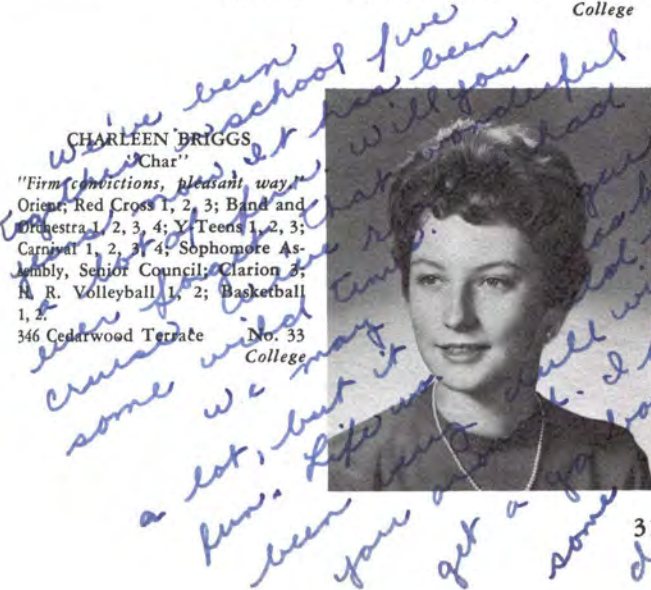 College
CHARLEEN BRIGGS
"Char"
"Firm convictions, pleasant way."
Orient; Red Cross 1, 2, 3; Band and
Orchestra 1, 2, 3, 4; Y-Teens 1, 2, 3;
Carnival 1, 2, 3, 4; Sophomore As-
sembly, Senior Council; Clarion 3;
H. R. Volleyball 1, 2; Basketball
1, 2.
346 Cedarwood Terrace No. 33
College
We've been
together in school five
years now. It has been
a lot of fun. Will you
ever forget that wonderful
cruise had
some wild times.
We may
a lot, but it
fun. Life
been very dull
you around. I
get a
some
3